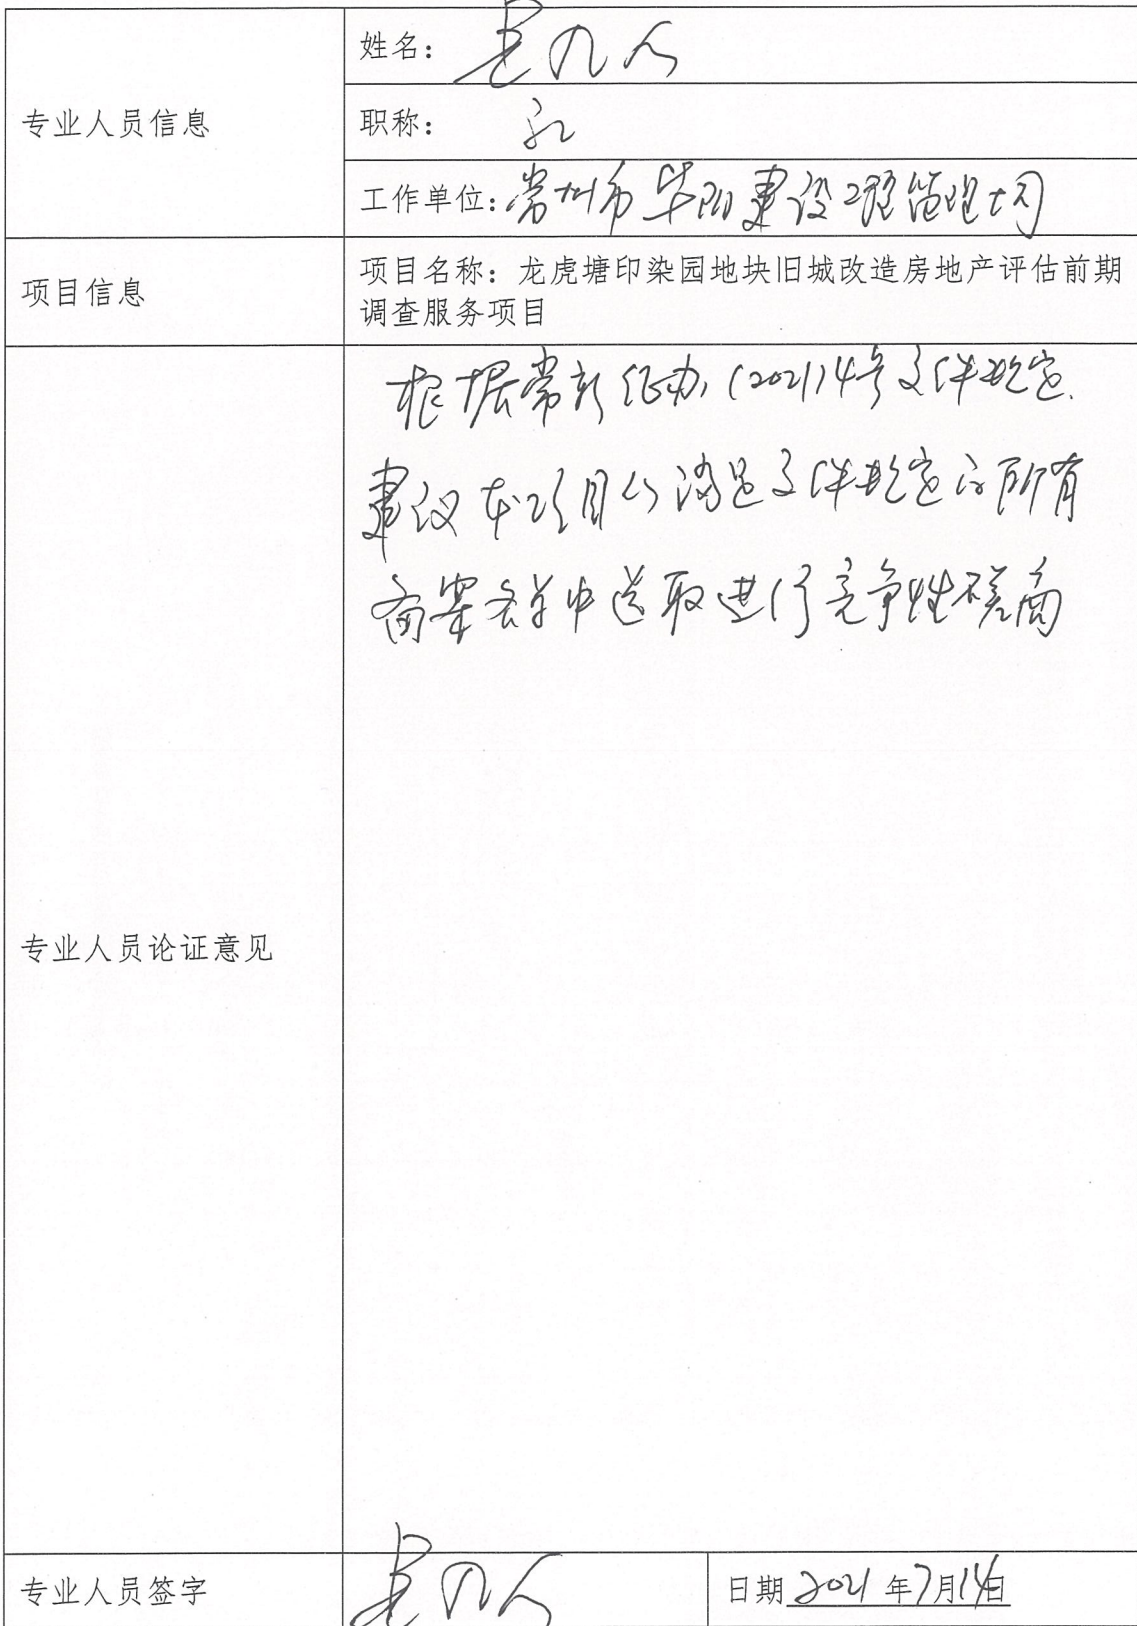 姓名：
专业人员信息
职称：
工作单位：常州市华阳建设工程管理公司
项目信息
项目名称：龙虎塘印染园地块旧城改造房地产评估前期
调查服务项目
根据常新征办（2021）4号文件规定.
建议本项目从满足文件规定的所有
备案名单中选取进行竞争性磋商
专业人员论证意见
专业人员签字
日期 2021 年7月14日